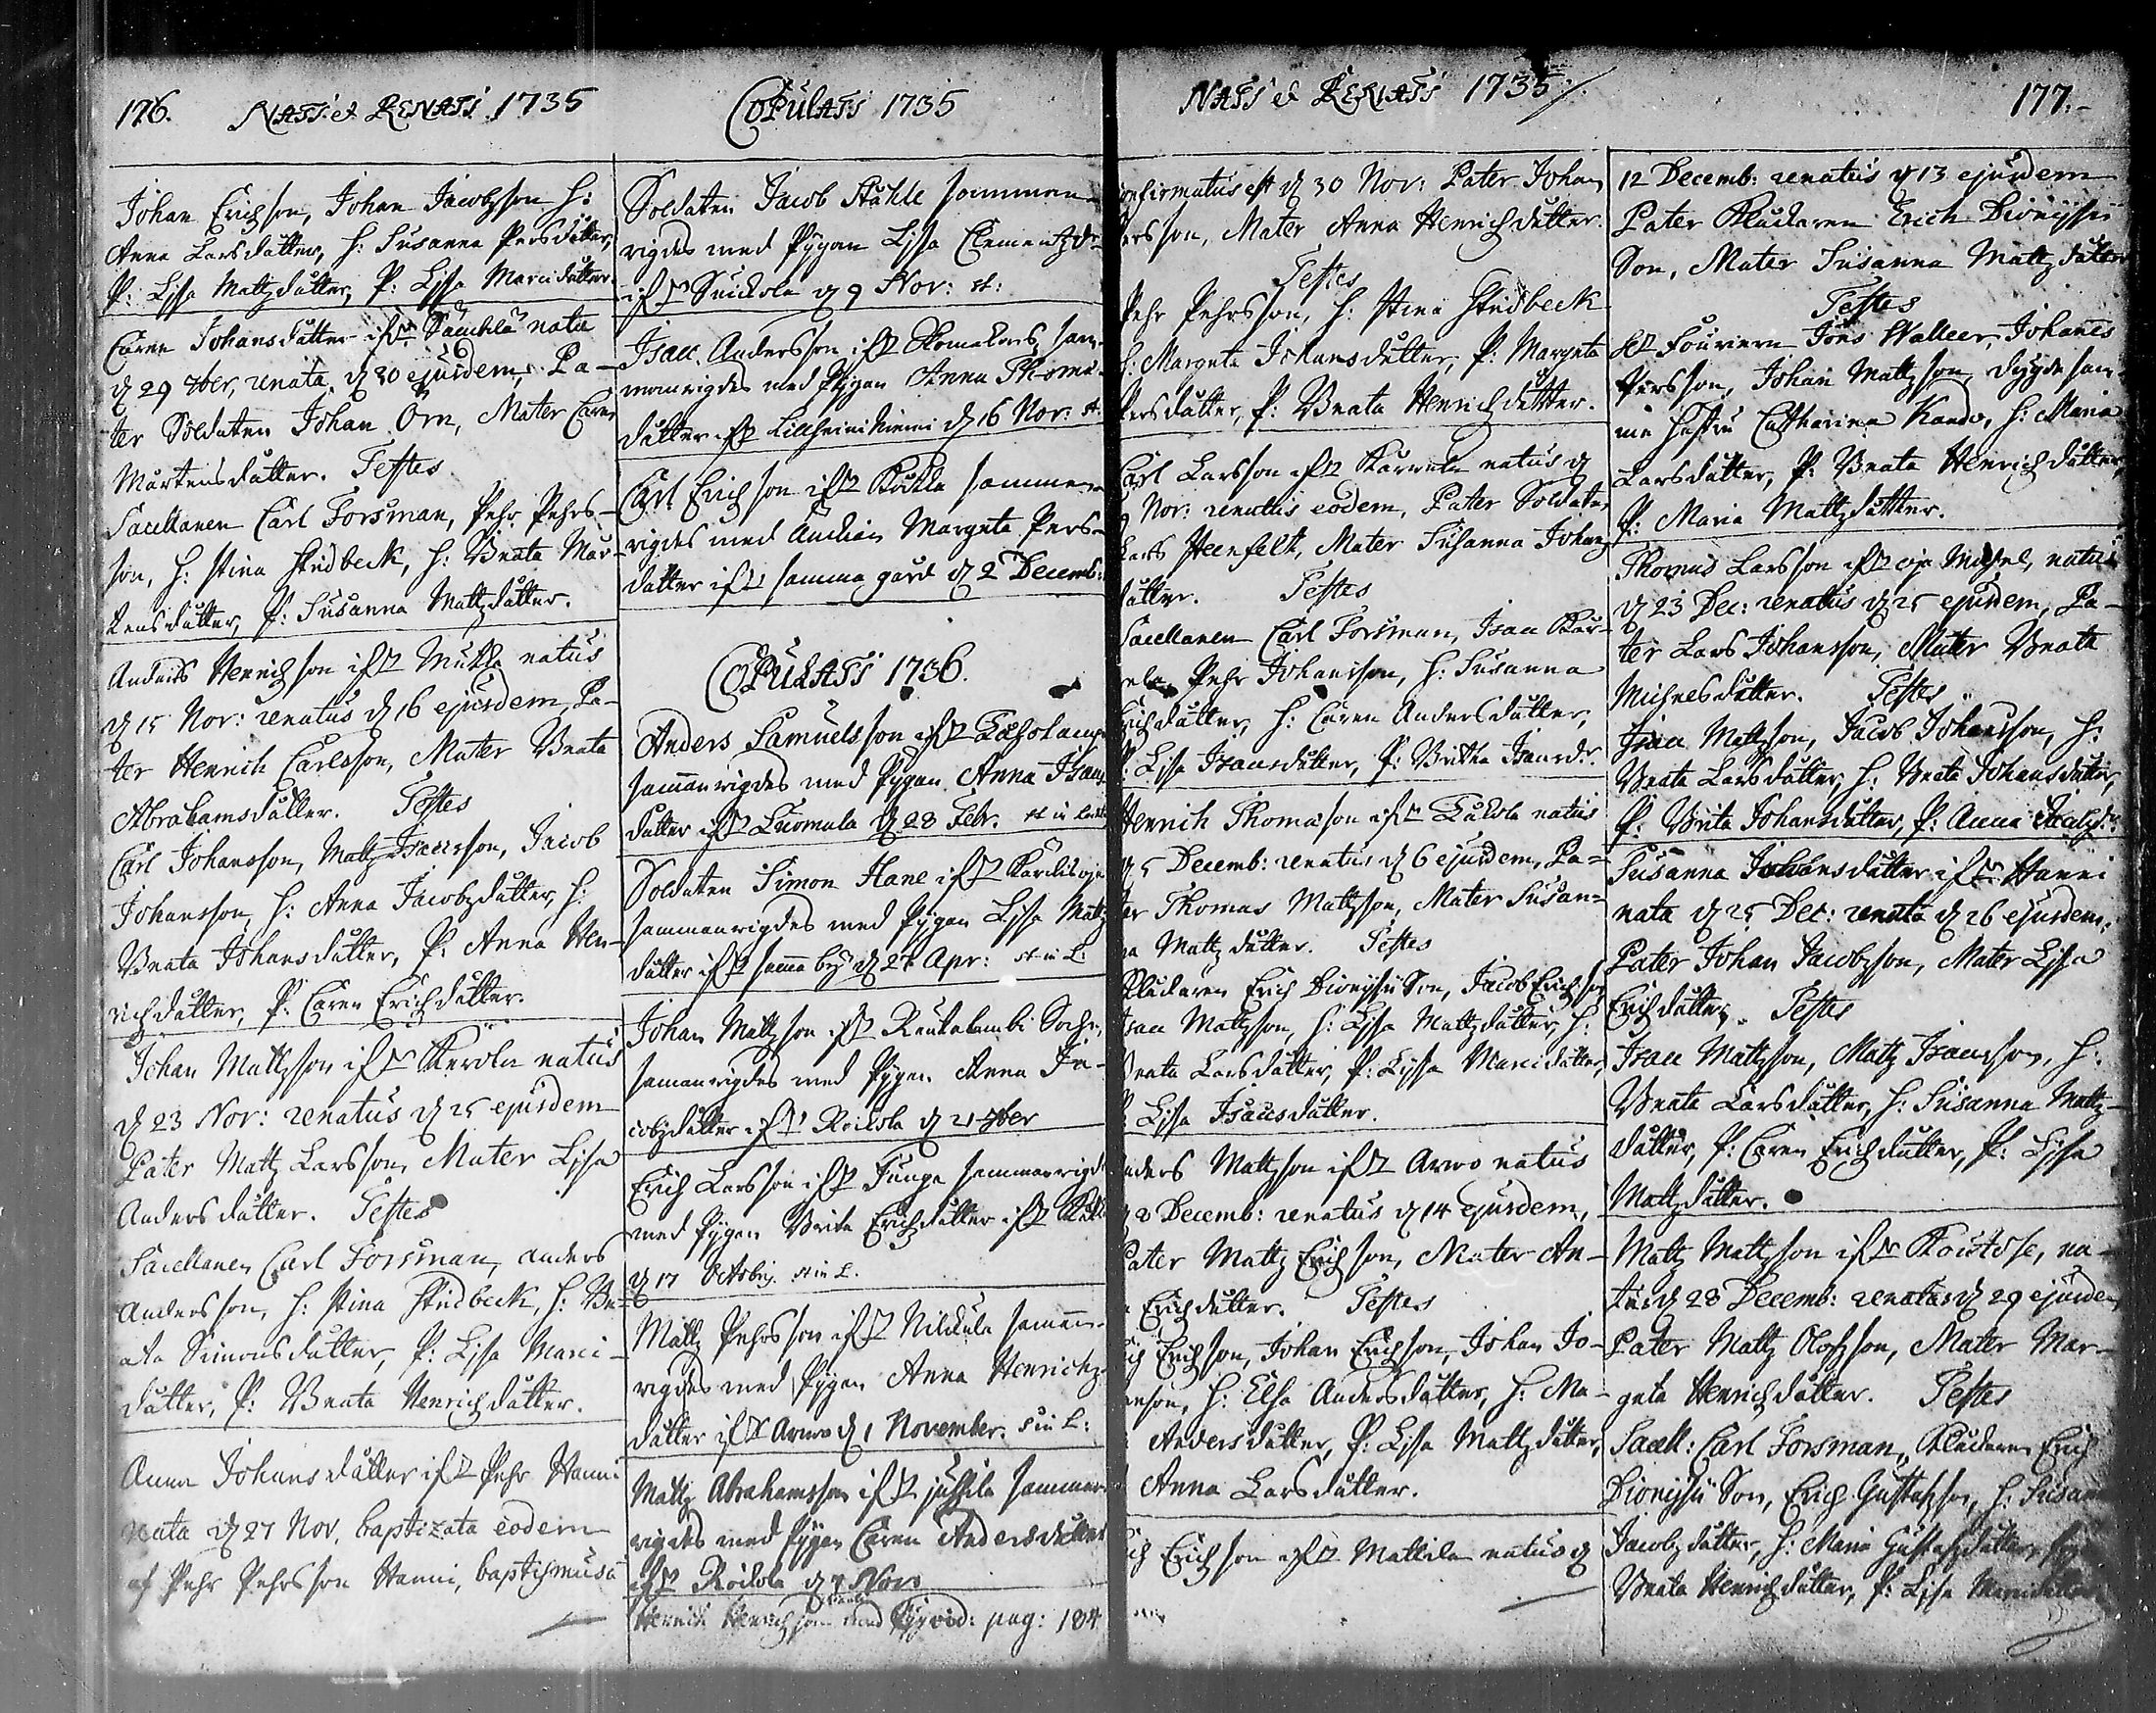 176. NATI & RENATI 1735
Johan Erichson, Johan Jacobsson h:
Anna Larsdotter, h: Susanna Persdotter,
P: Lisa Mattzdotter, P: Lisa Marcidotter.
Caren Johansdotter ifr nata
d 29 7ber, renata d 30 ejusdem, Pa-
ter Soldaten Johan Örn, Mater Caren
Mårtensdotter. Testes
Sacellanen Carl Forsman, Pehr Pehrs-
son, h: Stina Studbeck, h: Beata Mår-
tensdotter, P: Susanna Mattzdotter.
Anders Henrichson ifr natus
d 15 Nor: renatus d 16 ejusdem, Pa-
ter Henrich Carlsson, Mater Beata
Abrahamsdotter. Testes
Carl Johansson, Mattz Isacsson, Jacob
Johansson, h: Anna Jacobzdotter, h:
Beata Johansdotter, P: Anna Hen-
richdotter, P: Caren Erichdotter.
Johan Mattzson ifr Kerola natus
d 23 Nor: renatus d 25 ejusdem
Pater Mattz Larsson, Mater Lisa
Andersdotter. Testes
Sacellanen Carl Forsman, Anders
Andersson, h: Stina Studbeck, h: Be-
ata Simonsdotter, P: Lisa Marci-
dotter, P: Beata Henrichdotter.
Anna Johansdotter ifr Pehr Hanni
nata d 27 Nov. baptizata eodem
af Pehr Pehrsson Hanni, baptismus
COPULATI 1735
Soldaten Jacob Ståhle samman-
vigdes med Pygan Lisa Clementzdr
ifr d 9 Nor: st:
Isac Andersson ifr sam-
manvigdes med Pygan Anna Thoma-
dotter ifr Lillheininiemi d 16 Nor: st.
Carl Erichson ifr samman-
vigdes med Änckian Margeta Pers-
dotter ifr samma gård d 2 Decemb:
COPULATI 1736.
Anders Samuelsson ifr
sammanvigdes med Pygan Anna
dotter ifr Tuomala d 28 Febr. st in
Soldaten Simon Hane ifr
sammanvigdes med Pygan Lisa Mattz
dotter ifr samma by d 27 Apr: st in L:
Johan Mattzson ifr Rautalambi Sochn,
sammanvigdes med Pygan Anna Ja-
cobzdotter ifr Roikola d 21 7ber
Erich Larsson ifr sammanvigd
med Pygan Brita Erichdotter ifr
d 17 Octobris. st in L.
Mattz Pehrsson ifr Nikkula samman-
vigdes med Pygan Anna Henrichz-
dotter ifr Arwo d 1 November. s in L:
Mattz Abrahamsson ifr Jussila samman
vigdes med Pygan Caren Andersdotter
ifr Roikola d 7 Nov:
Henrich Henrichson med vid: pag: 184
NATI & RENATI 1735
confirmatus est d 30 Nor: Pater Johan
Persson, Mater Anna Henrichdotter.
Testes
Pehr Pehrsson, h: Stina Studbeck
h: Margeta Johansdotter, P: Margeta
Persdotter, P: Beata Henrichdotter.
Carl Larsson ifr natus d
Nor: renatus eodem, Pater Soldaten
Lars Steenfelt, Mater Susanna Johans
dotter. Testes
Sacellanen Carl Forsman, Isac
Pehr Johansson, h: Susanna
Erichdotter, h: Caren Andersdotter,
P: Lisa Isacsdotter, P: Britha Isacsdr.
Henrich Thomason ifr natus
d 5 Decemb: renatus d 6 ejusdem, Pa-
ter Thomas Mattzson, Mater Susan-
na Mattzdotter. Testes
Klockaren Erich Dionysii Son, Jacob Erichson
Isac Mattzson, h: Lisa Mattzdotter, h:
Beata Larsdotter, P: Lisa Marcidotter,
P: Lisa Isacsdotter.
Anders Mattzson ifr Arwo natus
d 8 Decemb: renatus d 14 ejusdem,
Pater Mattz Erichson, Mater An-
Erichdotter. Testes
Erichson, Johan Erichson, Johan Jo-
hansson, h: Elsa Andersdotter, h: Ma-
Andersdotter, P: Lisa Mattzdotter,
Anna Larsdotter.
Erichson ifr Mattila natus d
177.
12 Decemb: renatus d 13 ejusdem
Pater Klockaren Erich Dionysii
Son, Mater Susanna Mattzdotter
Testes
Fourieren Jöns Walleer, Johannes
Persson, Johan Mattzson, dygdesam-
me hustru Catharina, h: Maria
Larsdotter, P: Beata Henrichdotter,
P: Maria Mattzdotter.
Thomas Larsson ifr natus
d 23 Dec: renatus d 25 ejusdem, Pa-
ter Lars Johansson, Mater Beata
Michelsdotter. Testes
Isac Mattzson, Jacob Johansson, h:
Beata Larsdotter, h: Beata Johansdotter,
P: Brita Johansdotter, P: Anna Jacobzdr.
Susanna Johansdotter ifr Hanni
nata d 25 Dec: renata d 26 ejusdem.
Pater Johan Jacobzson, Mater Lisa
Erichdotter. Testes
Isac Mattzson, Mattz Isacsson, h:
Beata Larsdotter, h: Susanna Mattz-
dotter, P: Caren Erichdotter, P: Lisa
Mattzdotter.
Mattz Mattzson ifr na-
tus d 28 Decemb: renatus d 29 ejusdem
Pater Mattz Olofzson, Mater Mar-
geta Henrichdotter. Testes
Sacell: Carl Forsman, Klockaren Erich
Dionysii Son, Erich Gustafzson, h: Susanna
Jacobzdotter, h: Maria Gustafzdotter,
Beata Henrichdotter, P: Lisa Marcidotter